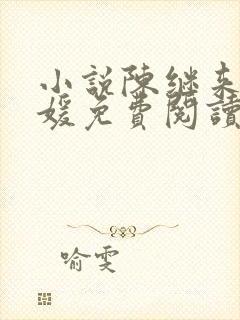 小說陳継来
媛免費閱讀
喻雯